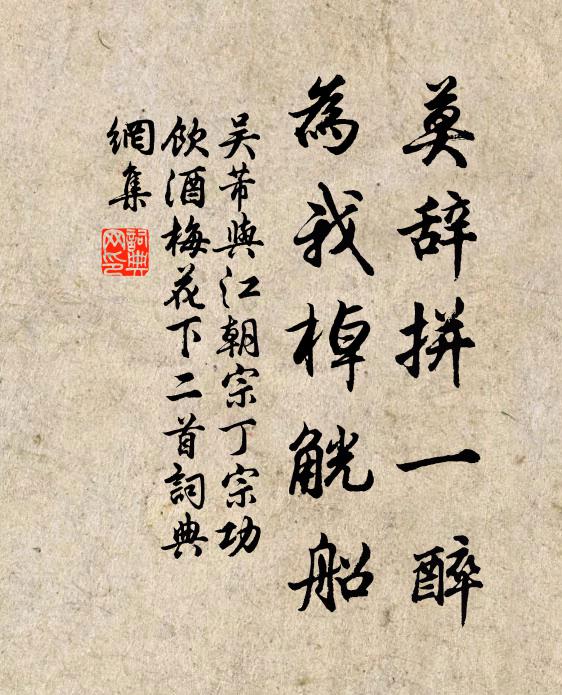 莫辞拼一醉
為我棹觥船
吴芾與江朝宗丁宗功
飲酒梅花下二首詞典
網集
詞典
网印